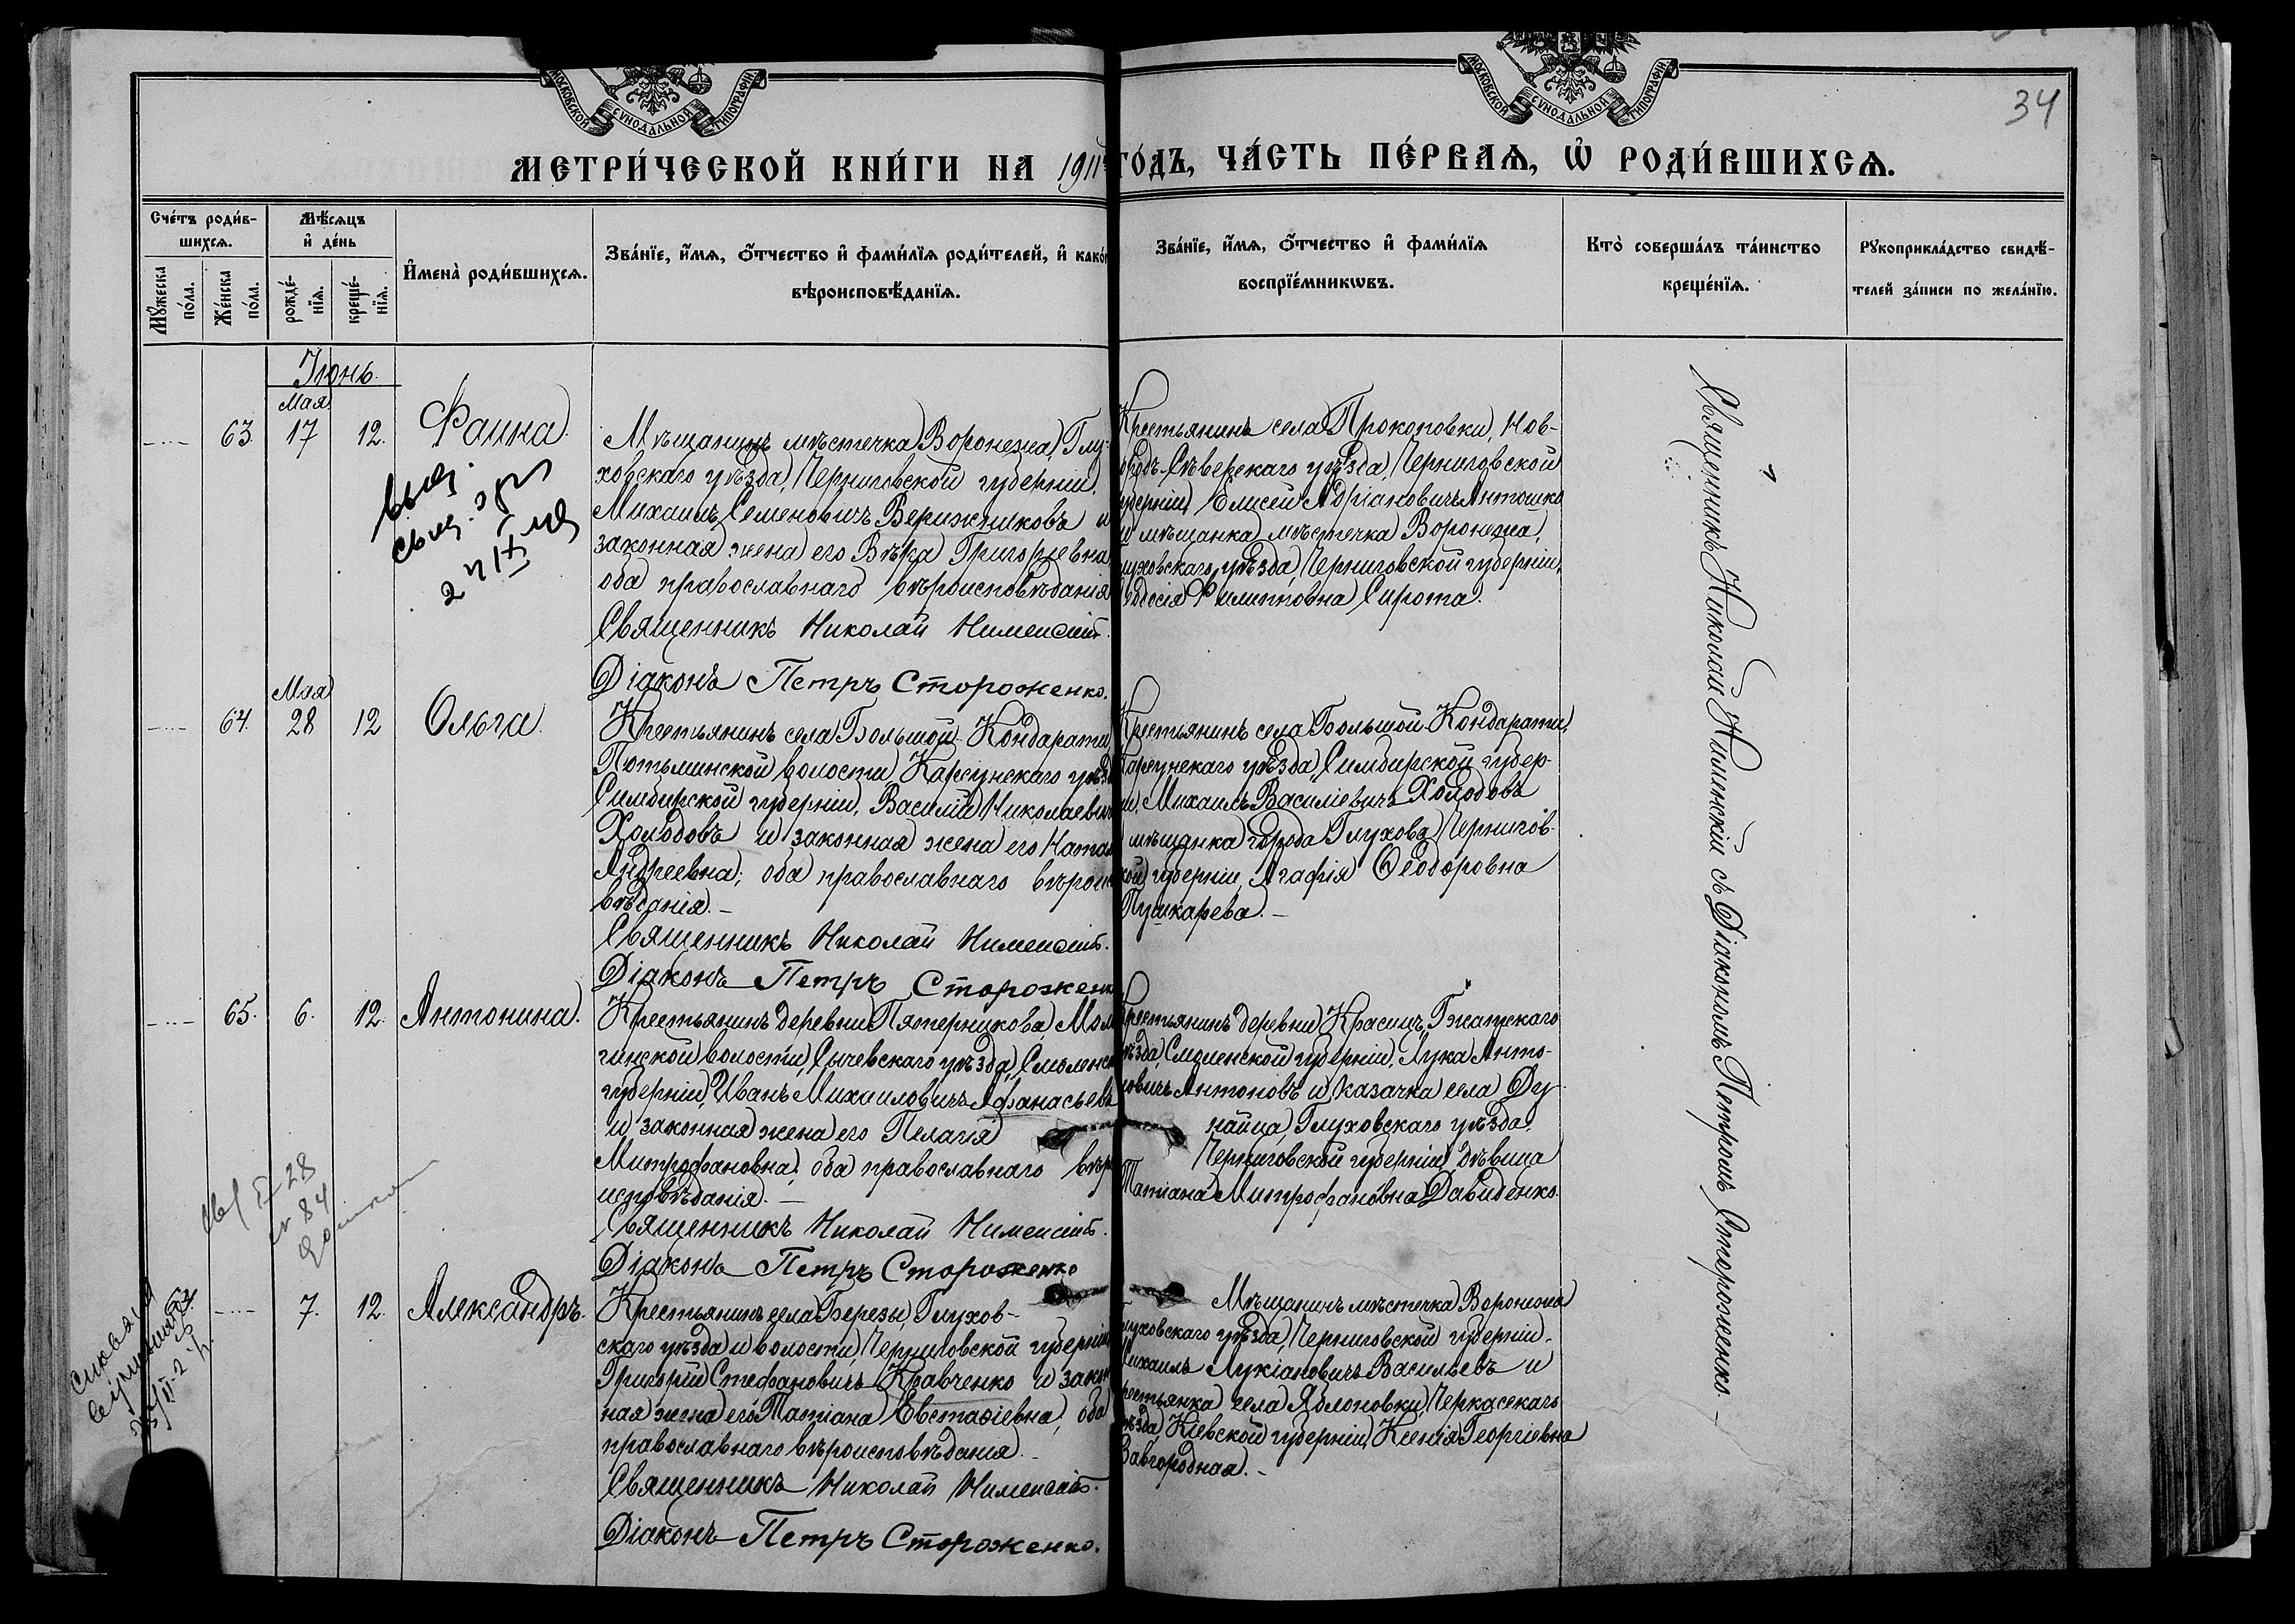 МОСКОВСКОЙ СѴНОДАЛЬНОЙ ТИПОГРАФІИ
МОСКОВСКОЙ СѴНОДАЛЬНОЙ ТИПОГРАФІИ
34
МЕТРИ́ЧЕСКОЙ КНИ́ГИ НА 1911 ГО́ДЪ, ЧА́СТЬ ПЕ́РВАѦ, Ѡ РОДИ́ВШИХСѦ.
Сче́тъ роди́в-
шихсѧ.
Мꙋ́жеска
по́ла.
Же́нска
по́ла.
Мѣ́сѧцъ
и҆ де́нь
рожде́-
нїѧ.
креще́-
нїѧ.
И҆мена̀ роди́вшихсѧ.
Зва́нїе, и҆́мѧ, ѻ҆́тчество и҆ фами́лїѧ роди́телей, и҆ како́г
вѣроисповѣ́данїѧ.
Зва́нїе, и҆́мѧ, ѻ҆́тчество и҆ фами́лїѧ
воспрїе́мникѡвъ.
Кто̀ соверша́лъ та́инство
креще́нїѧ.
Рꙋкоприкла́дство свидѣ́-
телей за́писи по жела́нїю.
Іюнь.
Мая
63. 17 12. Фаина.
Мѣщанинъ мѣстечка Воронежа, Глу-
ховскаго уѣзда, Черниговской губерніи,
Михаилъ Семеновичъ Верижниковъ и
законная жена его Вѣра Григорьевна
оба православнаго вѣроисповѣданія
Священникъ Николай
Діаконъ Петръ Стороженко.
Крестьянинъ села Прокоповки, Нов-
городъ-Сѣверскаго уѣзда, Черниговской
губерніи, Елисей Адріановичъ Антошко
и мѣщанка мѣстечка Воронежа,
Глуховскаго уѣзда, Черниговской губерніи,
Ѳеодосія Филипповна Сирота.
Мая
64. 28 12 Ольга.
Крестьянинъ села Большой Кондарати
Потьминской волости, Карсунскаго уѣзд
Симбирской губерніи, Василій Николаевичъ
Холодовъ и законная жена его Натал
Андреевна; оба православнаго вѣроис
вѣданія.–
Священникъ Николай
Діаконъ Петръ Стороженк
Крестьянинъ села Большой Кондарати,
Карсунскаго уѣзда, Симбирской губер-
ніи, Михаилъ Василіевичъ Холодовъ
и мѣщанка города Глухова, Чернигов-
ской губерніи, Агафія Ѳеодоровна
Пушкарева.–
65. 6. 12. Антонина.
Крестьянинъ деревни Пятерникова, Мол
гинской волости, Сычевскаго уѣзда, Смоленск
губерніи, Иванъ Михаиловичъ Афанасьевъ
и законная жена его Пелагія
Митрофановна, оба православнаго вѣр
исповѣданія.–
Священникъ Николай
Діаконъ Петръ Стороженко
Крестьянинъ деревни Красицъ, Гжатскаго
уѣзда, Смоленской губерніи, Лука Анто-
новичъ Антоновъ и казачка села Ду-
найца, Глуховскаго уѣзда,
Черниговской губерніи, дѣвица
Татіана Митрофановна Давиденко.
7. 12. Александръ.
Крестьянинъ села Березы, Глухов-
скаго уѣзда и волости, Черниговской губерніи,
Григорій Стефановичъ Кравченко и закон
ная жена его Татіана Евстафіевна, оба
православнаго вѣроисповѣданія.–
Священникъ Николай
Діаконъ Петръ Стороженко.
Мѣщанинъ мѣстечка Воронежа
Глуховскаго уѣзда, Черниговской губерніи,
Михаилъ Лукіановичъ Васильевъ и
крестьянка села Яблоновки, Черкасскаго
уѣзда, Кіевской губерніи, Ксенія Георгіевна
Завгородная.–
Священникъ Николай съ Діакономъ Петромъ Стороженко.–